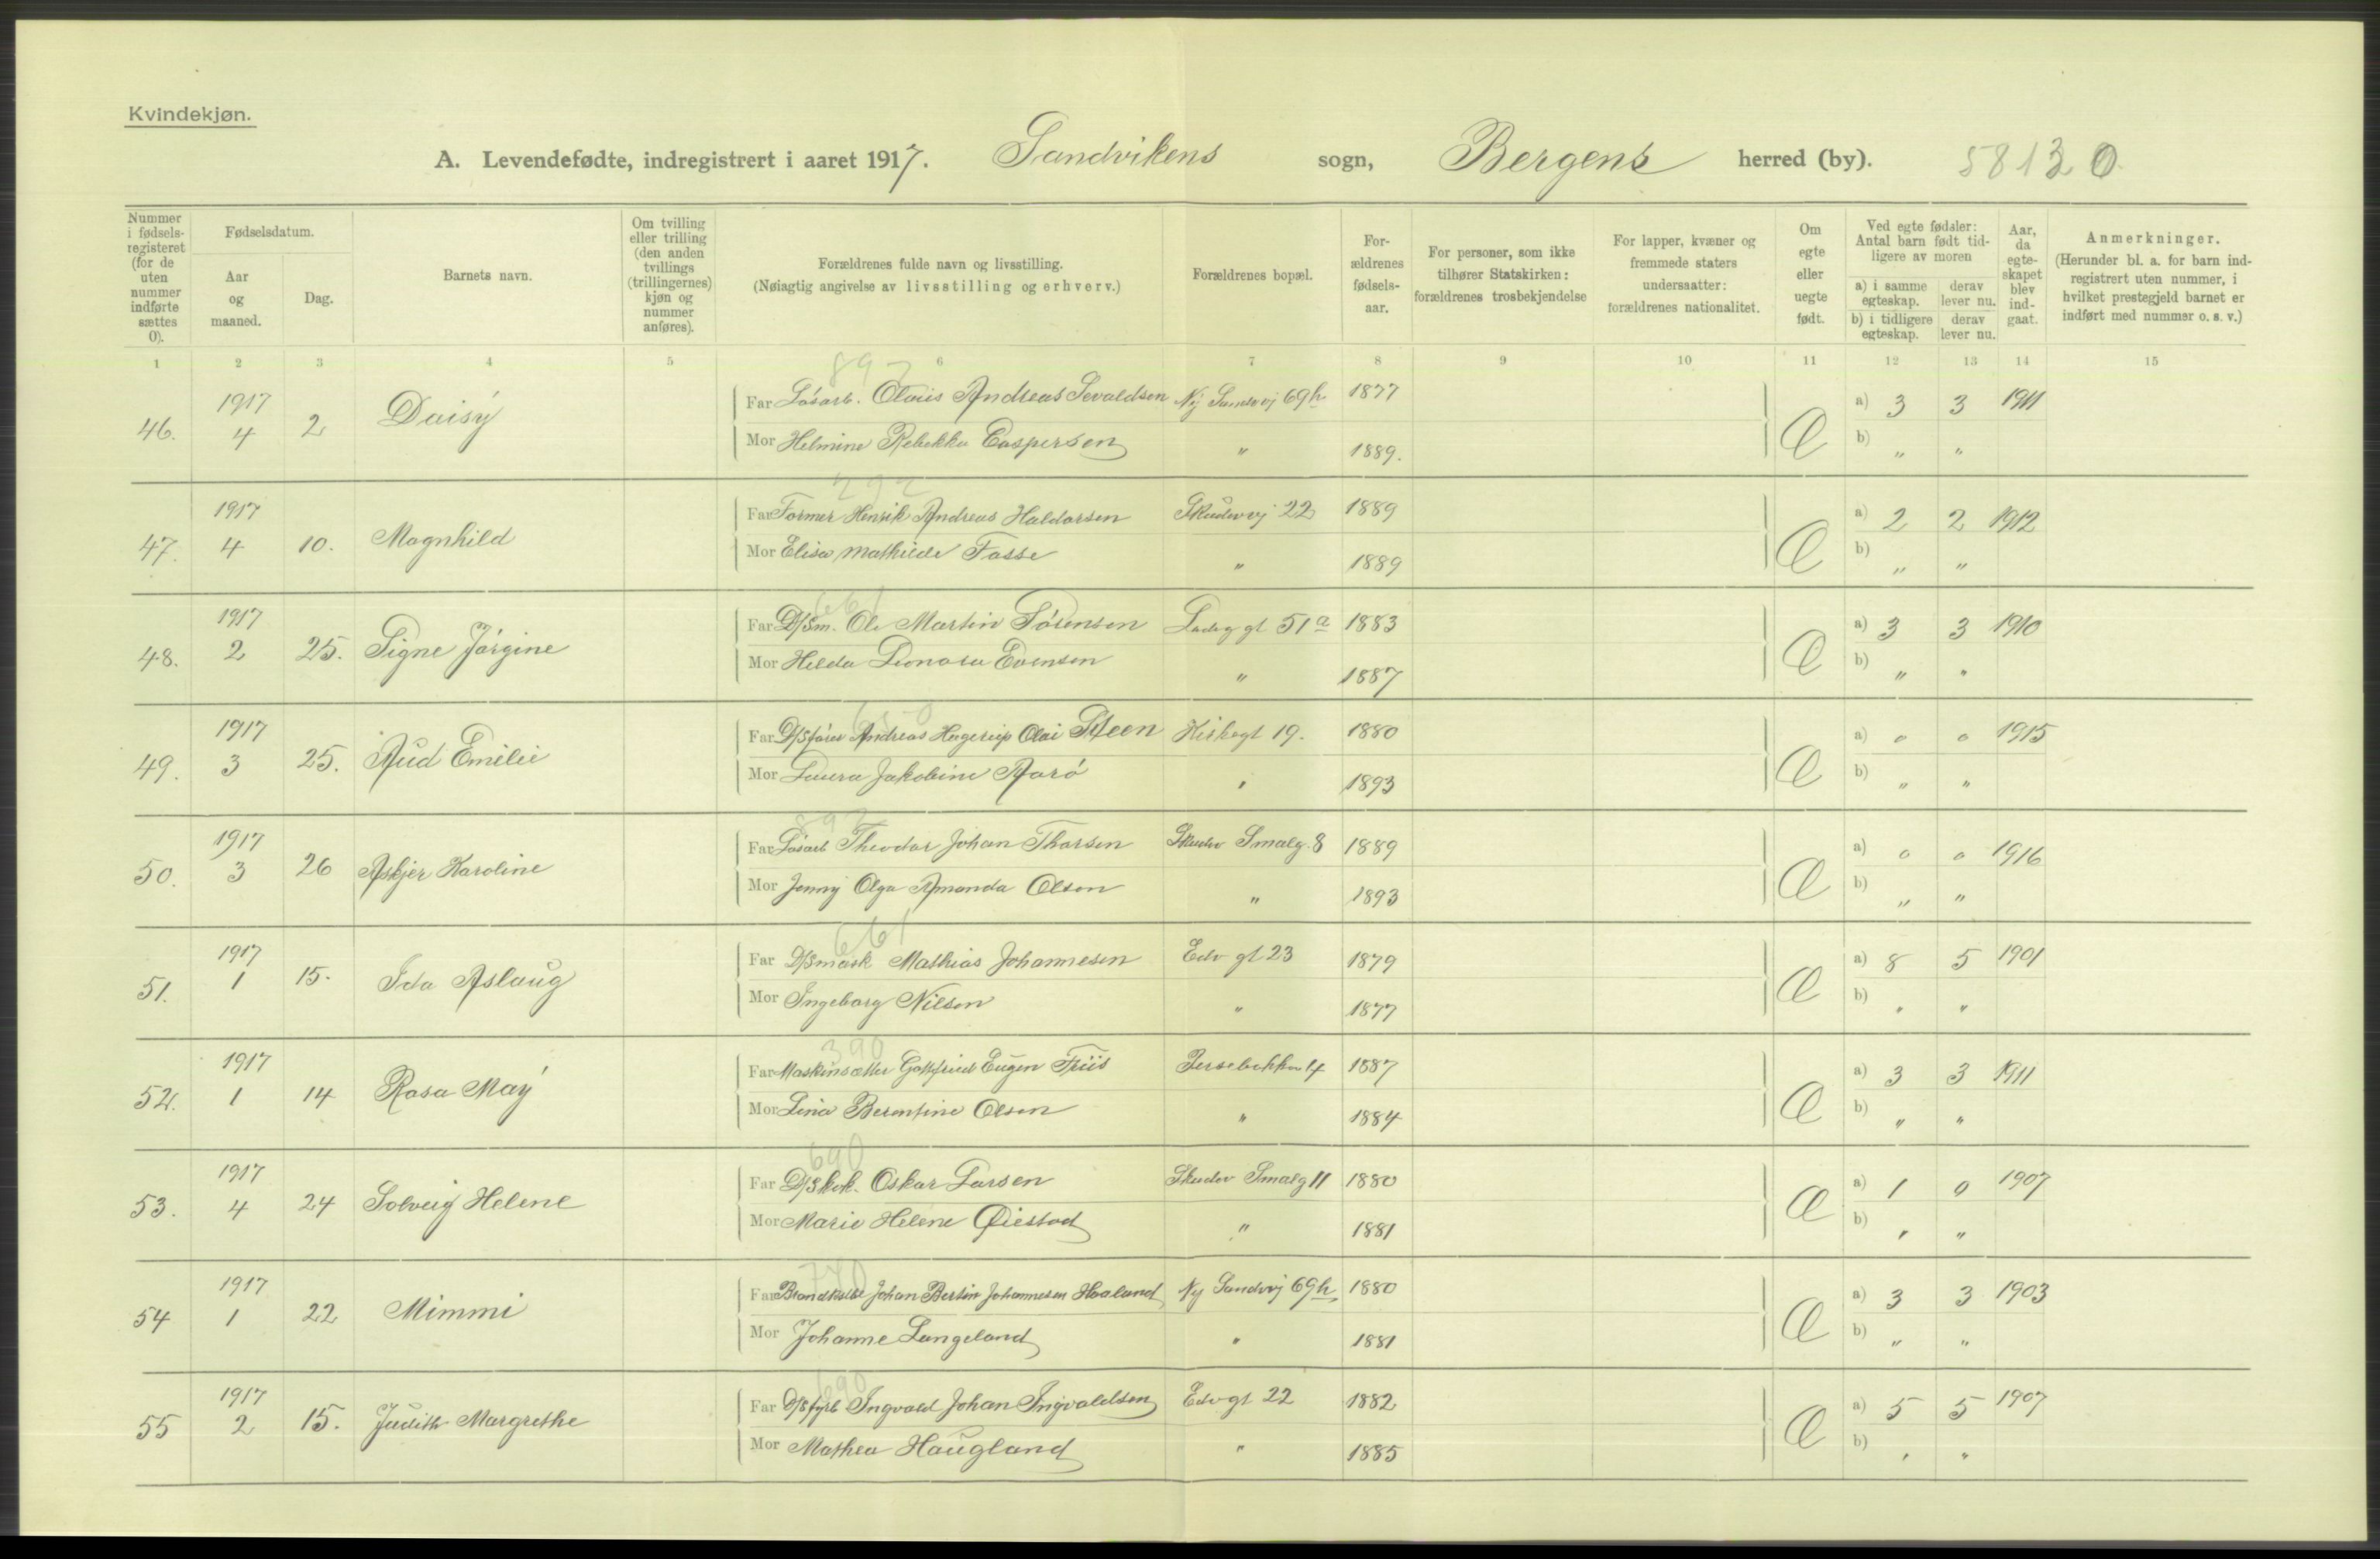 Kvindekjøn.
A. Levendefødte, indregistrert i aaret 1917. Sandvikens sogn, Bergens herred (by). 5813 0
Nummer i fødsels-registeret (for de uten nummer indførte sættes 0).
Fødselsdatum.
Aar og maaned.
Dag.
Barnets navn.
Om tvilling eller trilling (den anden tvillings (trillingernes) kjøn og nummer anføres).
Forældrenes fulde navn og livsstilling.
(Nøiagtig angivelse av livsstilling og erhverv.)
Forældrenes bopæl.
For-ældrenes fødsels-aar.
For personer, som ikke tilhører Statskirken: forældrenes trosbekjendelse
For lapper, kvæner og fremmede staters undersaatter: forældrenes nationalitet.
Om egte eller uegte født.
Ved egte fødsler: Antal barn født tid-ligere av moren
a) i samme egteskap. derav lever nu.
b) i tidligere egteskap. derav lever nu.
Aar, da egte-skapet blev ind-gaat.
Anmerkninger.
(Herunder bl. a. for barn ind-registrert uten nummer, i hvilket prestegjeld barnet er indført med nummer o. s. v.)
1 2 3 4 5 6 7 8 9 10 11 12 13 14 15
892
46. 1917 4 2 Daisy Far Løsarb. Olaus Andreas Sevaldsen Ny Sandvvj 69h 1877 a) 3 3 1911
Mor Helmine Rebekka Caspersen " 1889. b) " "
292
47. 1917 4 10. Magnhild Far Former Henrik Andreas Haldorsen Skudevvj 22 1889 a) 2 2 1912
Mor Elisa Mathilde Fosse " 1889 b) " "
661
48. 1917 2 25. Signe Jørgine Far D/Sm. Ole Martin Sørensen Ladeg gt 51a 1883 a) 3 3 1910
Mor Hilda Leonora Evensen " 1887 b) " "
650
49. 1917 3 25. Aud Emilie Far D/Sfører Andreas Hagerup Olai Steen Kirkegt 19. 1880 a) 0 0 1915
Mor Laura Jakobine Aarø " 1893 b) " "
892
50. 1917 3 26 Askjer Karoline Far Løsarb Theodor Johan Thorsen Skudev Smalg. 8 1889 a) 0 0 1916
Mor Jenny Olga Amanda Olsen " 1893 b) " "
661
51. 1917 1 15. Ida Aslaug Far D/Smask Mathias Johannesen Edv gt 23 1879 a) 8 5 1901
Mor Ingeborg Nilsen " 1877 b) " "
390
52. 1917 1 14 Rosa May Far Maskinsætter Gottfried Eugen Friis Persebakken 4 1887 a) 3 3 1911
Mor Lina Berentine Olsen " 1884 b) " "
690
53. 1917 4 24 Solveig Helene Far D/Skok. Oskar Larsen Skudev Smalg 11 1880 a) 1 0 1907
Mor Marie Helene Øiestad " 1881 b) " "
770
54 1917 1 22 Mimmi Far Brandkusk Johan Bertin Johannesen Haaland Ny Sandvvj 69h 1880 a) 3 3 1903
Mor Johanne Langeland " 1881 b) " "
690
55 1917 2 15. Judith Margrethe Far D/Sfyrb Ingvald Johan Ingvaldsen Edv gt 22 1882 a) 5 5 1907
Mor Mathea Haugland " 1885 b) " "